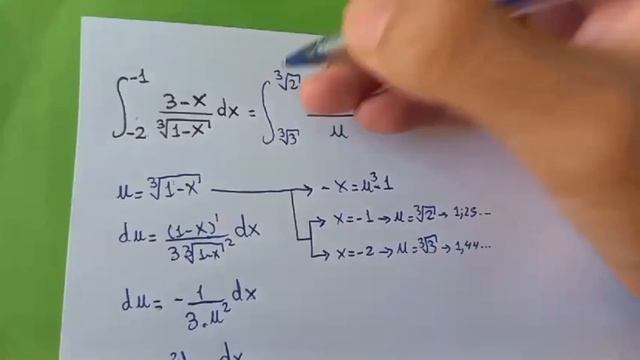 ∫_{-2}^{-1} \frac{3-x}{\sqrt[3]{1-x}} dx = ∫_{\sqrt[3]{3}}^{\sqrt[3]{2}} \frac{}{u}
u = \sqrt[3]{1-x} → -x = u^3-1
du = \frac{(1-x)'}{3\sqrt[3]{1-x}^2} dx → x = -1 → u = \sqrt[3]{2} → 1,25...
→ x = -2 → u = \sqrt[3]{3} → 1,44...
du = -\frac{1}{3.u^2} dx
dx